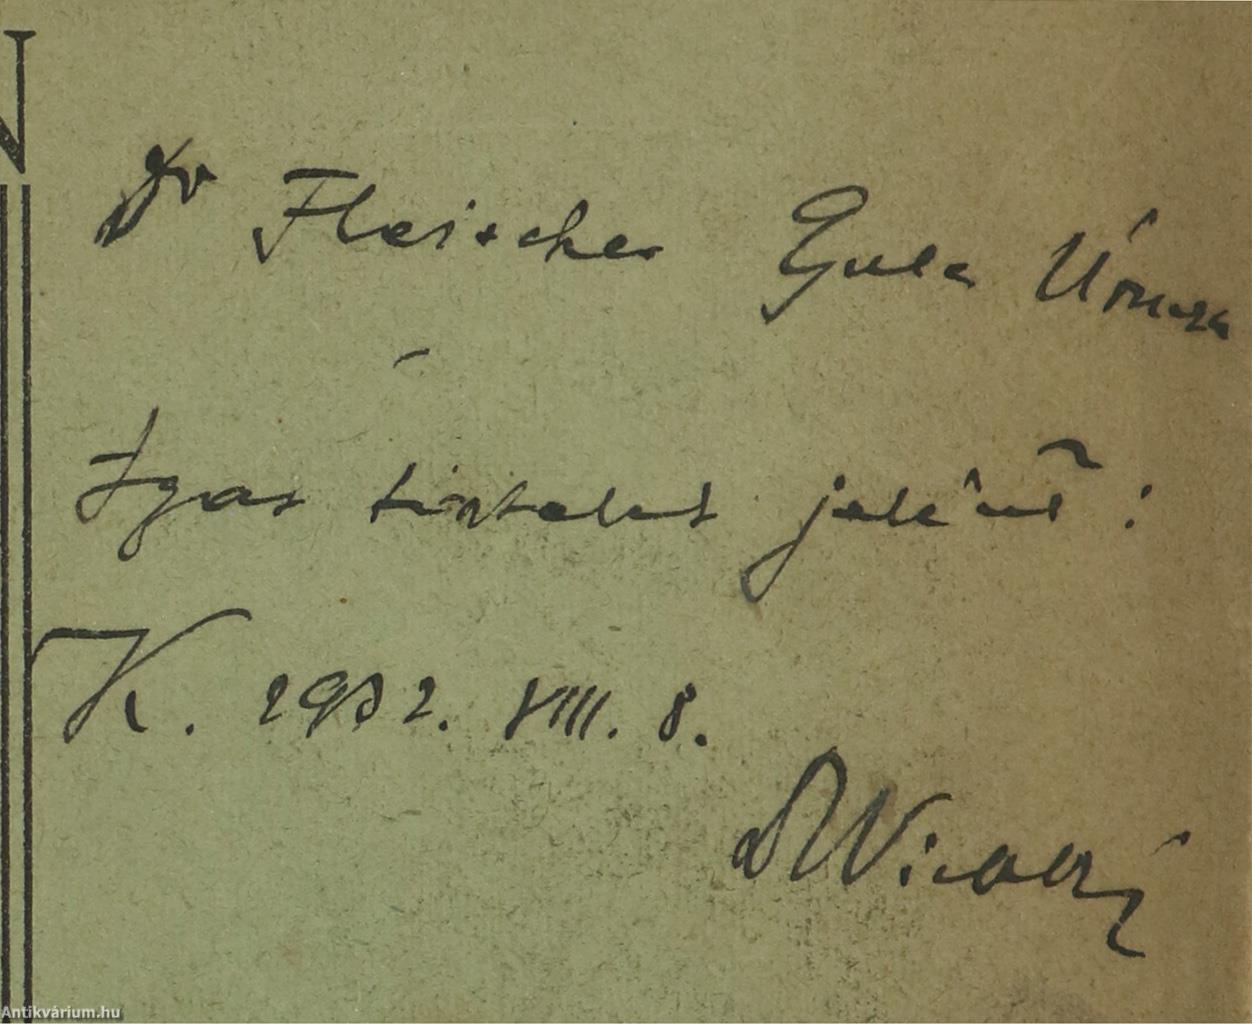 N
Dr Fleischer Gyula Úrnak
Igaz tisztelet jeléül:
K. 1932. VIII. 8.
Antikvárium.hu